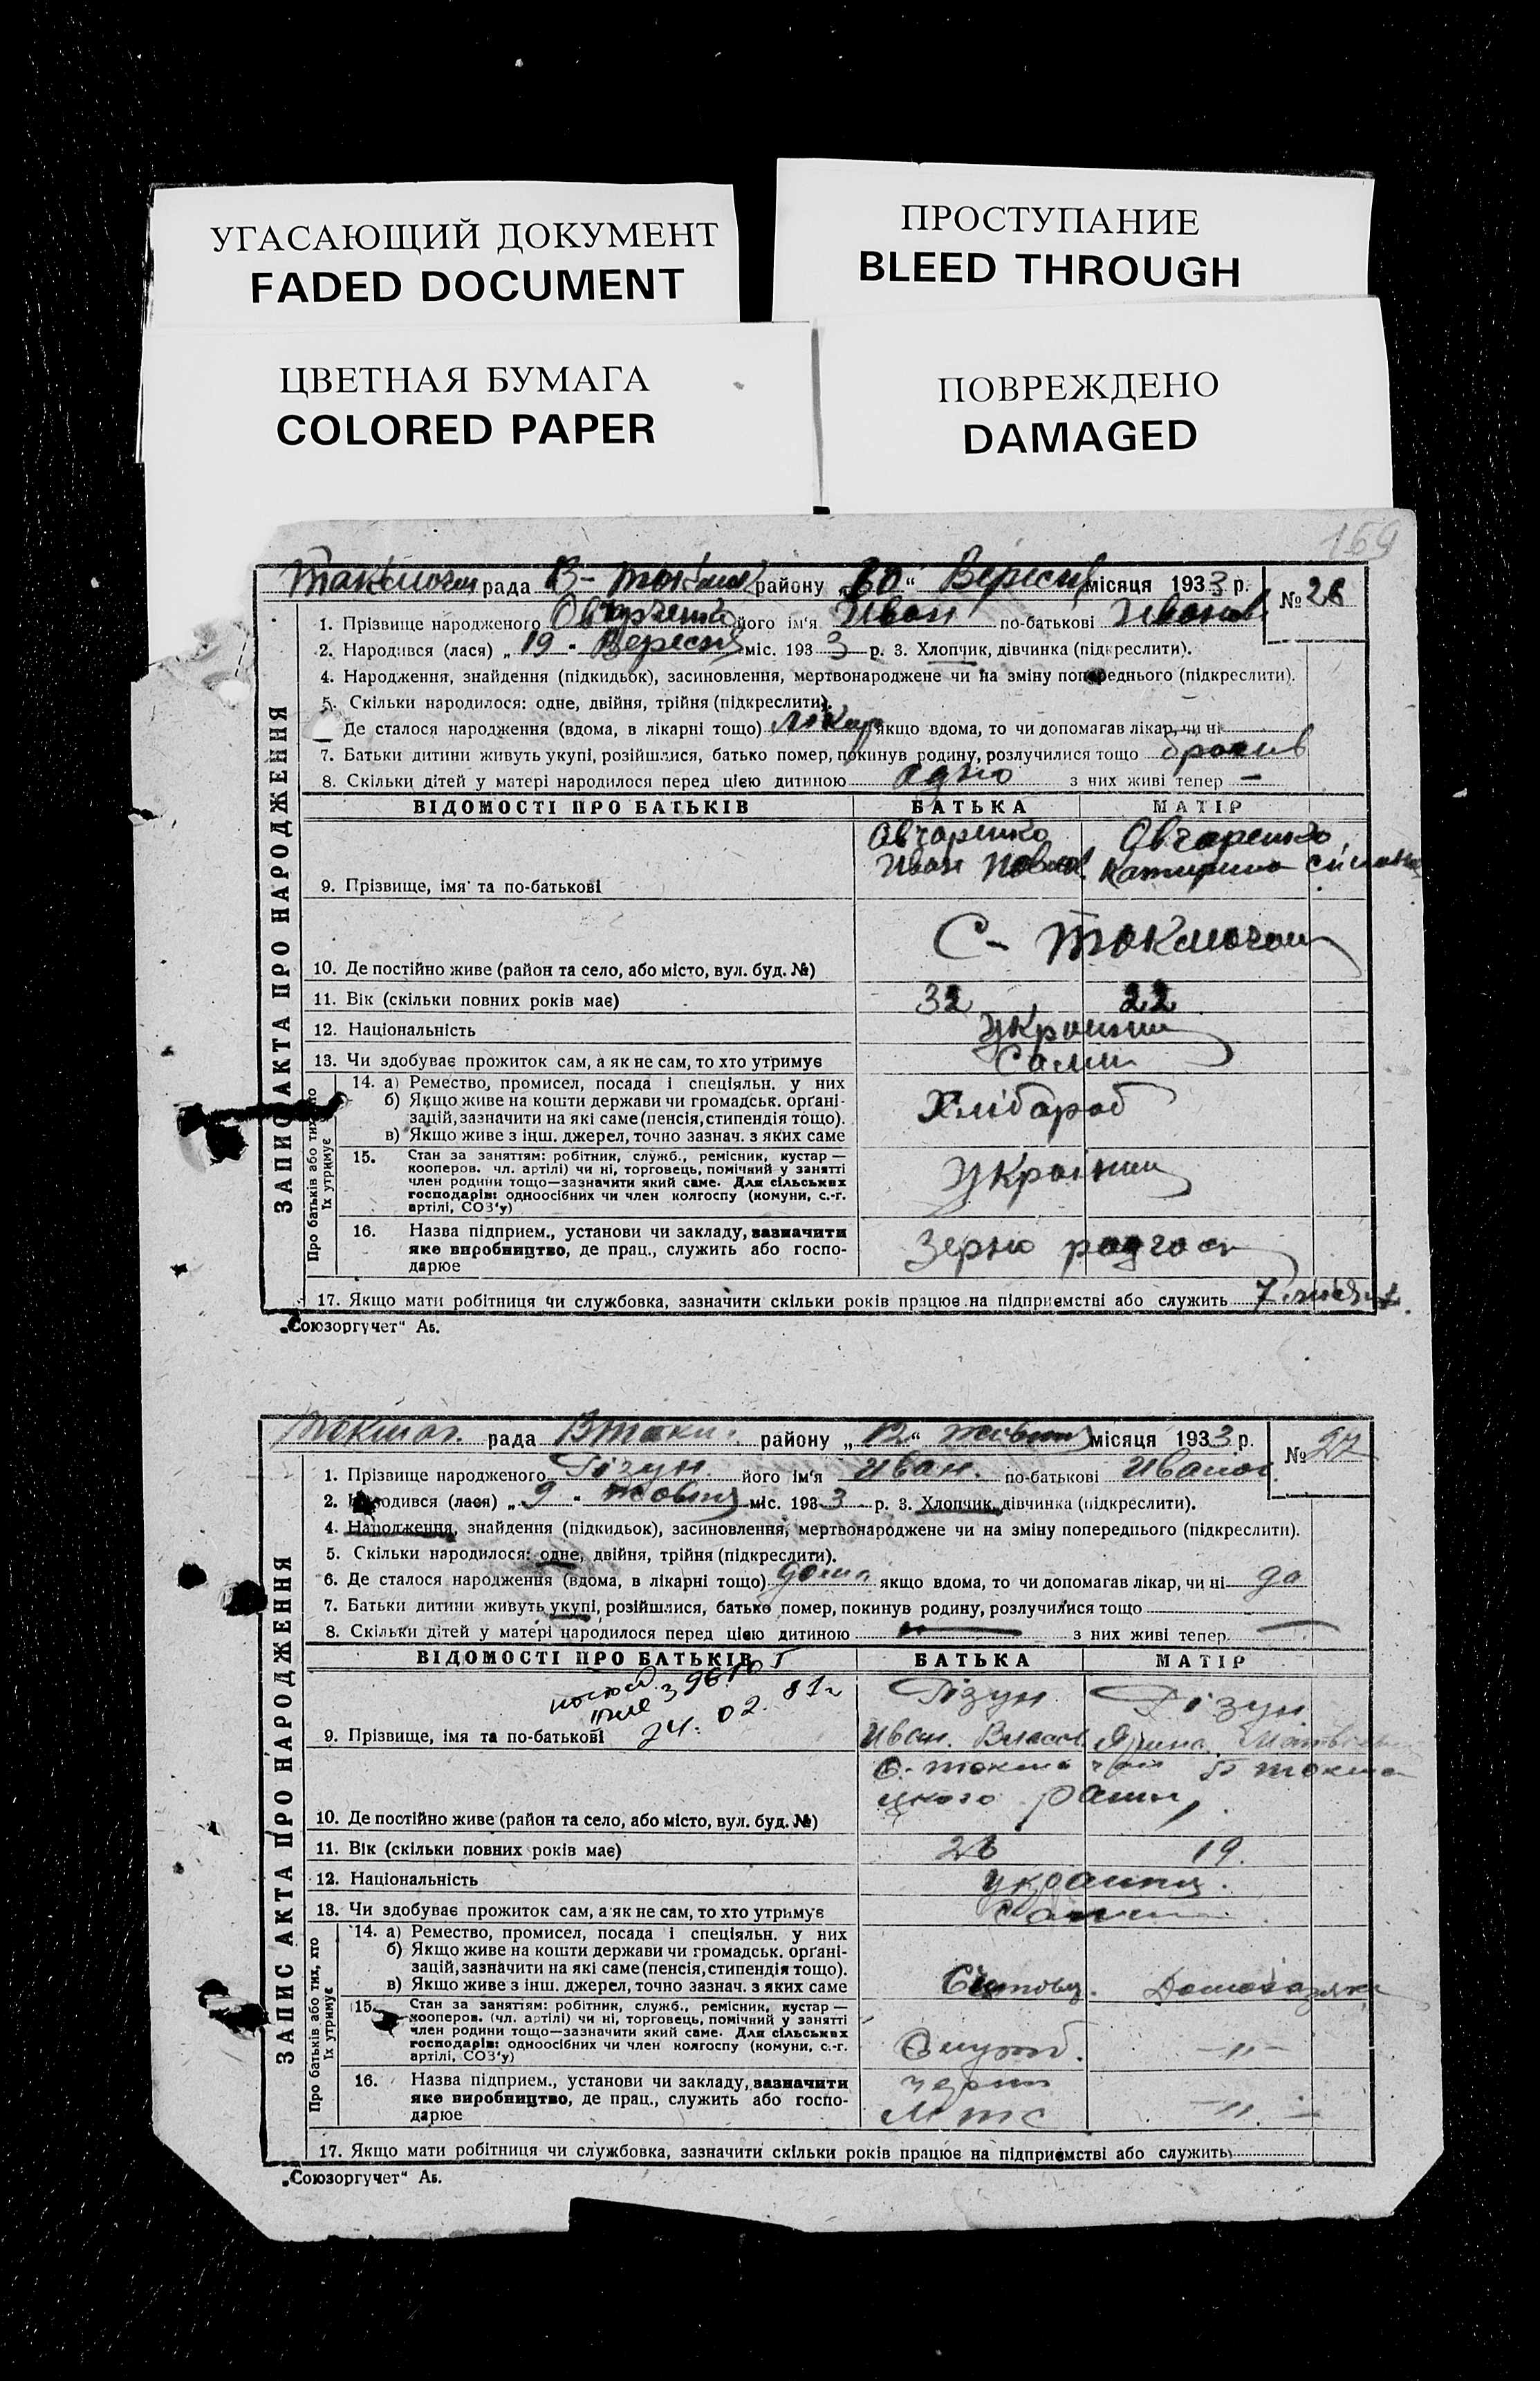 УГАСАЮЩИЙ ДОКУМЕНТ
FADED DOCUMENT
ПРОСТУПАНИЕ
BLEED THROUGH
ЦВЕТНАЯ БУМАГА
COLORED PAPER
ПОВРЕЖДЕНО
DAMAGED
169
рада В- району „30“ Вересня місяця 1933 р. № 26
1. Прізвище народженого Овчаренко його ім'я Иван по-батькові Иванов
2. Народився (лася) „ 19 " Вересня міс. 193 3 р. 3. Хлопчик, дівчинка (підкреслити).
4. Народження, знайдення (підкидьок), засиновлення, мертвонароджене чи на зміну попереднього (підкреслити).
5. Скільки народилося: одне, двійня, трійня (підкреслити).
Де сталося народження (вдома, в лікарні тощо) якщо вдома, то чи допомагав лікар, чи ні
7. Батьки дитини живуть укупі, розійшлися, батько помер, покинув родину, розлучилися тощо
8. Скільки дітей у матері народилося перед цією дитиною одно з них живі тепер —
ЗАПИС АКТА ПРО НАРОДЖЕННЯ
ВІДОМОСТІ ПРО БАТЬКІВ БАТЬКА МАТІР
Овчаренко Овчаренко
Иван Павлов. Катирина
9. Прізвище, імя та по-батькові
С- Токмочан
10. Де постійно живе (район та село, або місто, вул. буд. №)
11. Вік (скільки повних років має) 32 22
12. Національність
13. Чи здобуває прожиток сам, а як не сам, то хто утримує Сами
Про батьків або тих, хто їх утримує
14. а) Ремество, промисел, посада і спеціяльн. у них
б) Якщо живе на кошти держави чи громадськ. орґані-
зацій, зазначити на які саме (пенсія, стипендія тощо).
в) Якщо живе з інш. джерел, точно зазнач. з яких саме
Хлібароб
15. Стан за заняттям: робітник, служб., ремісник, кустар —
кооперов. чл. артілі) чи ні, торговець, помічний у занятті
член родини тощо—зазначити який саме. Для сільських
господарів: одноосібних чи член колгоспу (комуни, с.-г.
артілі, СОЗ'у)
16. Назва підприєм., установи чи закладу, зазначити
яке виробництво, де прац., служить або госпо-
дарює
Зерно радгосп
17. Якщо мати робітниця чи службовка, зазначити скільки років працює на підприємстві або служить 7
„Союзоргучет“ Аб.
рада району „12“ жовтня місяця 1933 р. № 27
1. Прізвище народженого Гізун його ім'я Иван. по-батькові Иванов.
2. Народився (лася) „ 9 " жовтня міс. 193 3 р. 3. Хлопчик, дівчинка (підкреслити).
4. Народження, знайдення (підкидьок), засиновлення, мертвонароджене чи на зміну попереднього (підкреслити).
5. Скільки народилося: одне, двійня, трійня (підкреслити).
6. Де сталося народження (вдома, в лікарні тощо) дома якщо вдома, то чи допомагав лікар, чи ні до
7. Батьки дитини живуть укупі, розійшлися, батько помер, покинув родину, розлучилися тощо
8. Скільки дітей у матері народилося перед цією дитиною — з них живі тепер —
ЗАПИС АКТА ПРО НАРОДЖЕННЯ
ВІДОМОСТІ ПРО БАТЬКІВ БАТЬКА МАТІР
24. 02. 81г
Гізун Гізун
Иван. Власов.
9. Прізвище, імя та по-батькові
10. Де постійно живе (район та село, або місто, вул. буд. №)
11. Вік (скільки повних років має) 26 19.
12. Національність
13. Чи здобуває прожиток сам, а як не сам, то хто утримує
Про батьків або тих, хто їх утримує
14. а) Ремество, промисел, посада і спеціяльн. у них
б) Якщо живе на кошти держави чи громадськ. орґані-
зацій, зазначити на які саме (пенсія, стипендія тощо).
в) Якщо живе з інш. джерел, точно зазнач. з яких саме
15. Стан за заняттям: робітник, служб., ремісник, кустар —
кооперов. (чл. артілі) чи ні, торговець, помічний у занятті
член родини тощо—зазначити який саме. Для сільських
господарів: одноосібних чи член колгоспу (комуни, с.-г.
артілі, СОЗ'у)
Служб. —"—
16. Назва підприєм., установи чи закладу, зазначити
яке виробництво, де прац., служить або госпо-
дарює
мтс —"—
17. Якщо мати робітниця чи службовка, зазначити скільки років працює на підприємстві або служить
„Союзоргучет“ Аб.